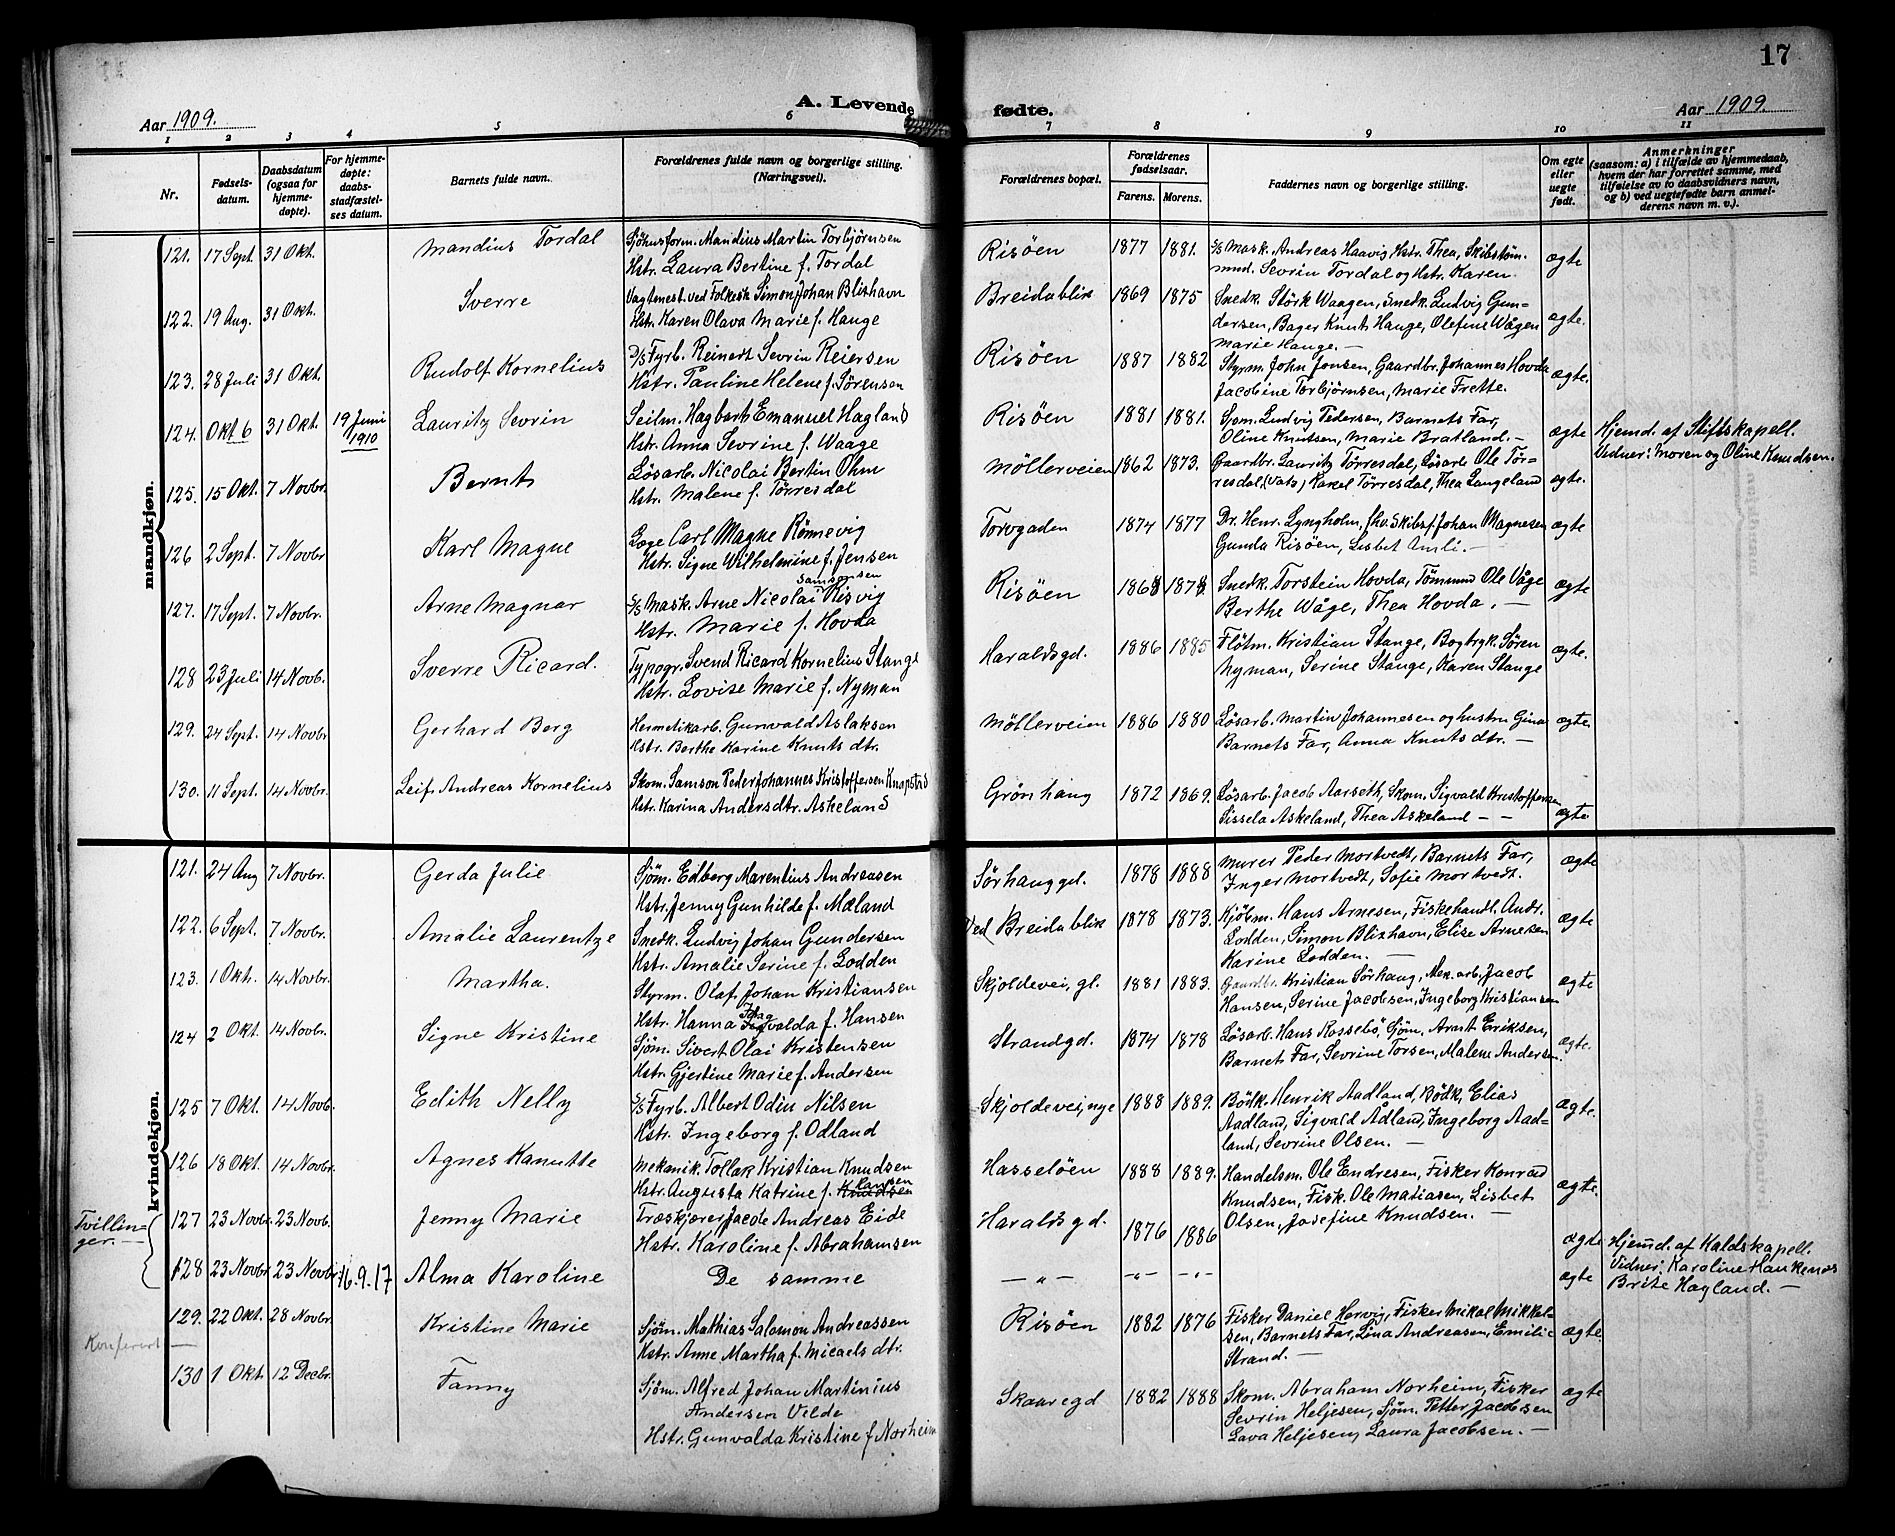 17
Aar 1909.
A. Levende fødte.
Aar 1909.
1 2 3 4 5 6 7 8 9 10 11
Nr.
Fødsels-
datum.
Daabsdatum
(ogsaa for
hjemme-
døpte).
For hjemme-
døpte:
daabs-
stadfæstel-
ses datum.
Barnets fulde navn.
Forældrenes fulde navn og borgerlige stilling.
(Næringsvei).
Forældrenes bopæl.
Forældrenes
fødselsaar.
Farens. Morens.
Faddernes navn og borgerlige stilling.
Om egte
eller
uegte
født.
Anmerkninger
(saasom: a) i tilfælde av hjemmedaab,
hvem der har forrettet samme, med
tilføielse av to daabsvidners navn,
og b) ved uegtefødte barn anmel-
derens navn m. v.).
mandkjøn.
121. 17 Sept. 31 Okt. Mandius Tordal Sjöhusform. Mandius Martin Torbjörnsen Risöen 1877 1881. S/S Mask. Andreas Haavig, Hstr. Thea, Skibstöm.
Hstr. Laura Bertine f. Tordal mnd. Sevrin Tordal og Hstr. Karen. ægte
122. 19 Aug. 31 Okt. Sverre Vagtmest. ved Folkesk. Simon Johan Blixhavn Breidablik 1869 1875 Snedk. Störk Waagen, Snedk. Ludvig Gun-
Hstr. Karen Olava Marie f. Hauge dersen, Bager Knut Hauge, Olefine Wågen ægte.
Marie Hauge. —
123. 28 Juli 31 Okt. Rudolf Kornelius D/S Fyrb. Reinert Sevrin Reiersen Risöen 1887 1882 Styrm. John Jensen, Gaardbr. Johannes Hovda
Hstr. Pauline Helene f. Sørensen Jacobine Torbjörnsen, Marie Frette. ægte.
124. Okt 6 31 Okt. 19 Juni 1910 Lauritz Sevrin Seilm. Hagbart Emanuel Hagland Risöen 1881 1881. Sjöm. Ludvig Pedersen, Barnets Far,
Hstr. Anna Sevrine f. Waage Oline Knutsen, Marie Bratland. — ægte Hjemd. af Stiftskapell.
Vidner: Moren og Oline Knudsen.
125. 15 Okt. 7 Novbr. Bernt Løsarb. Nicolai Bertin Ohm Möllerveien 1862 1873. Gaardbr. Lauritz Tørresdal, Løsarb. Ole Tör-
Hstr. Malene f. Tørresdal resdal, (Vats) Rakel Tørresdal, Thea Langeland ægte.
126 2 Sept. 7 Novbr Karl Magne Læge Carl Magne Rønnevig Torvgaden 1874 1877 Dr. Henr. Lyngholm, fhv. Skibsf. Johan Magnesen ægte
Hstr. Signe Wilhelmine f. Jensen Gunda Risöen, Lisbet Amli. —
127. 17 Sept. 7 Novbr. Arne Magnar S/S Mask. Arne Nicolai Samsonsen Risvig Risöen 1868 1878. Snedk. Torstein Hovda, Tömmmd Ole Våge ægte
Hstr. Marie f. Hovda Berthe Wåge, Thea Hovda. —
128 23 Juli 14 Novb. Sverre Ricard. Typogr. Svend Ricard Kornelius Stange Haraldsgd. 1886 1885 Flötm. Kristian Stange, Bogtryk. Sören
Hstr. Lovise Marie f. Nyman Nyman, Serine Stange, Karen Stange ægte.
129. 24 Sept. 14 Novbr Gerhard Berg Hermetikarb. Gunvald Aslaksen Möllerveien 1886 1880 Løsarb. Martin Johannesen og hustru Gina ægte.
Hstr. Berthe Karine Knuts dtr. Barnets Far, Anna Knuts dtr. —
130. 11 Sept. 14 Novbr. Leif Andreas Kornelius Skom. Samson Peder Johannes Kristoffersen Knapstad Grönhaug 1872 1869. Løsarb. Jacob Aarseth, Skom. Sigvald Kristoffersen
Hstr. Karina Andersdtr. Askeland Sissela Askeland, Thea Askeland — — ægte
kvindekjøn.
121. 24 Aug 7 Novbr. Gerda Julie Sjöm. Edberg Marentius Andreasen Sörhauggd. 1878 1888 Murer Peder Mortvedt, Barnets Far, ægte
Hstr. Jenny Gunhilde f. Mæland Inger Mortvedt, Sofie Mortvedt.
122. 6 Sept. 7 Novbr. Amalie Laurentze Snedk. Ludvig Johan Gundersen Ved Breidablik 1878 1873. Kjöbm. Hans Arnesen, Fiskehandl. Andr. ægte
Hstr. Amalie Serine f. Lodden Lodden, Simon Blixhavn, Elise Arnesen
Karine Lodden. —
123. 1 Okt. 14 Novbr. Martha. Styrm. Olaf Johan Kristiansen Skjoldevei, gl. 1881 1883. Gaardbr. Kristian Sörhaug, Mek. arb. Jacob ægte
Hstr. Hanna Ingvalda f. Hansen Hansen, Serine Jacobsen, Ingeborg Kristiansen
124 2 Okt. 14 Novbr. Signe Kristine Sjöm. Sivert Olai Kristensen Strandgd. 1874 1878 Løsarb. Hans Rossebö, Sjöm. Arnt Eriksen, ægte.
Hstr. Gjertine Marie f. Andersen Barnets Far, Sevrine Torsen, Malene Andersen.
125 7 Okt. 14 Novb. Edith Nelly S/S Fyrb. Albert Odin Nilsen Skjoldevei, nye 1888 1889. Bödk. Henrik Aadland, Bödk. Elias ægte.
Hstr. Ingeborg f. Odland Aadland, Sigvald Ådland, Ingeborg Aad-
land, Sevrine Olsen. —
126 18 Okt. 14 Novbr. Agnes Kanutte Mekanik. Tollak Kristian Knudsen Hasselöen 1888 1889. Handelsm. Ole Endresen, Fisker Konrad
Hstr. Augusta Katrine f. Knudsen Hansen Knudsen, Fisk. Ole Matiasen, Lisbet ægte.
Olsen, Josefine Knudsen. —
Tvillin-
ger. —
127 23 Novbr. 23 Novb. Jenny Marie Træskjærer Jacob Andreas Eide Haraldsgd. 1876 1886
Hstr. Karoline f. Abrahamsen ægte Hjemd. af Kaldskapell.
128 23 Novbr 23 Novbr. 16.9.17 Alma Karoline De samme — " — — " — — " — ægte Vidner: Karoline Haukenæs
Brite Hagland. —
129. 22 Okt. 28 Novbr. Kristine Marie Sjöm. Mathias Salomon Andreassen Risöen 1882 1876 Fisker Daniel Hervig, Fisker Mikal Mikkel-
Hstr. Anne Martha f. Micaels dtr. sen, Barnets Far, Lina Andreasen, Emilie ægte.
Strand. —
Konferert —
130 1 Okt. 12 Decbr. Fanny Sjöm. Alfred Johan Martinius Skaaregd 1882 1888 Skom. Abraham Norheim, Fisker ægte
Andersen Velde Sevrin Heljesen, Sjöm. Petter Jacobsen
Hstr. Gunvalda Kristine f. Norheim Lava Heljesen, Laura Jacobsen. —